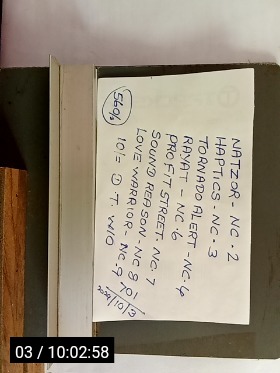 NATZOR - NC - 2
HAPTICS - NC - 3
TORNADO ALERT - NC - 6
RAYAT - NC - 6
PROFIT STREET - NC - 7
SOUND REASON - NC 8
LOVE WARRIOR - NC - 9
10/= ① T. W/O
03 / 10:02:58